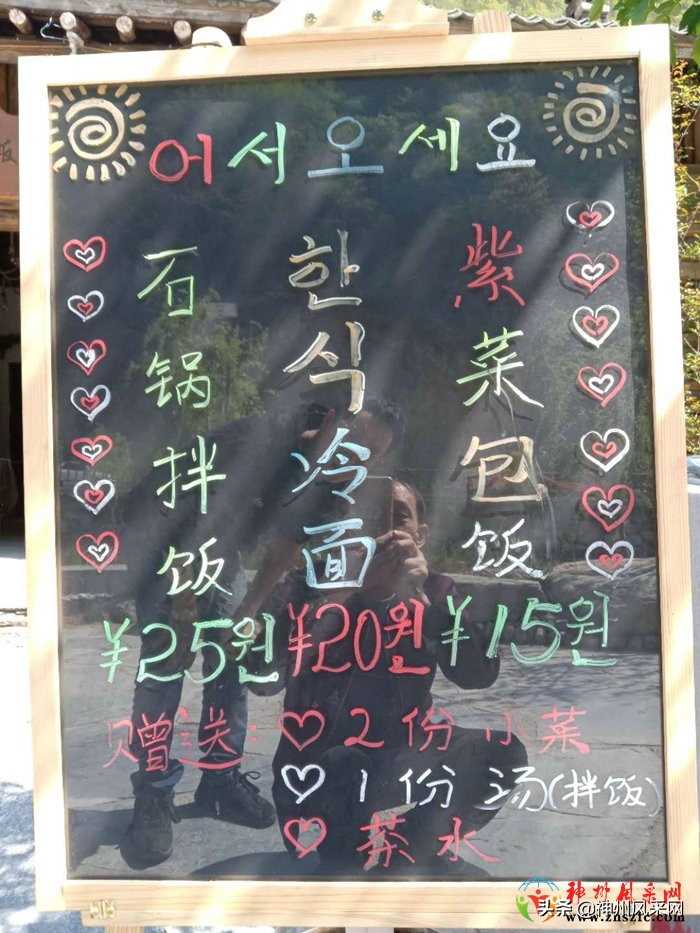 어서오세요
石锅拌饭
한식冷面
紫菜包饭
¥25원 ¥20원 ¥15원
赠送: ♡ 2份小菜
♡ 1份 汤(拌饭)
♡ 茶水
神州风采网
www.znszfc.com
头条@神州风采网